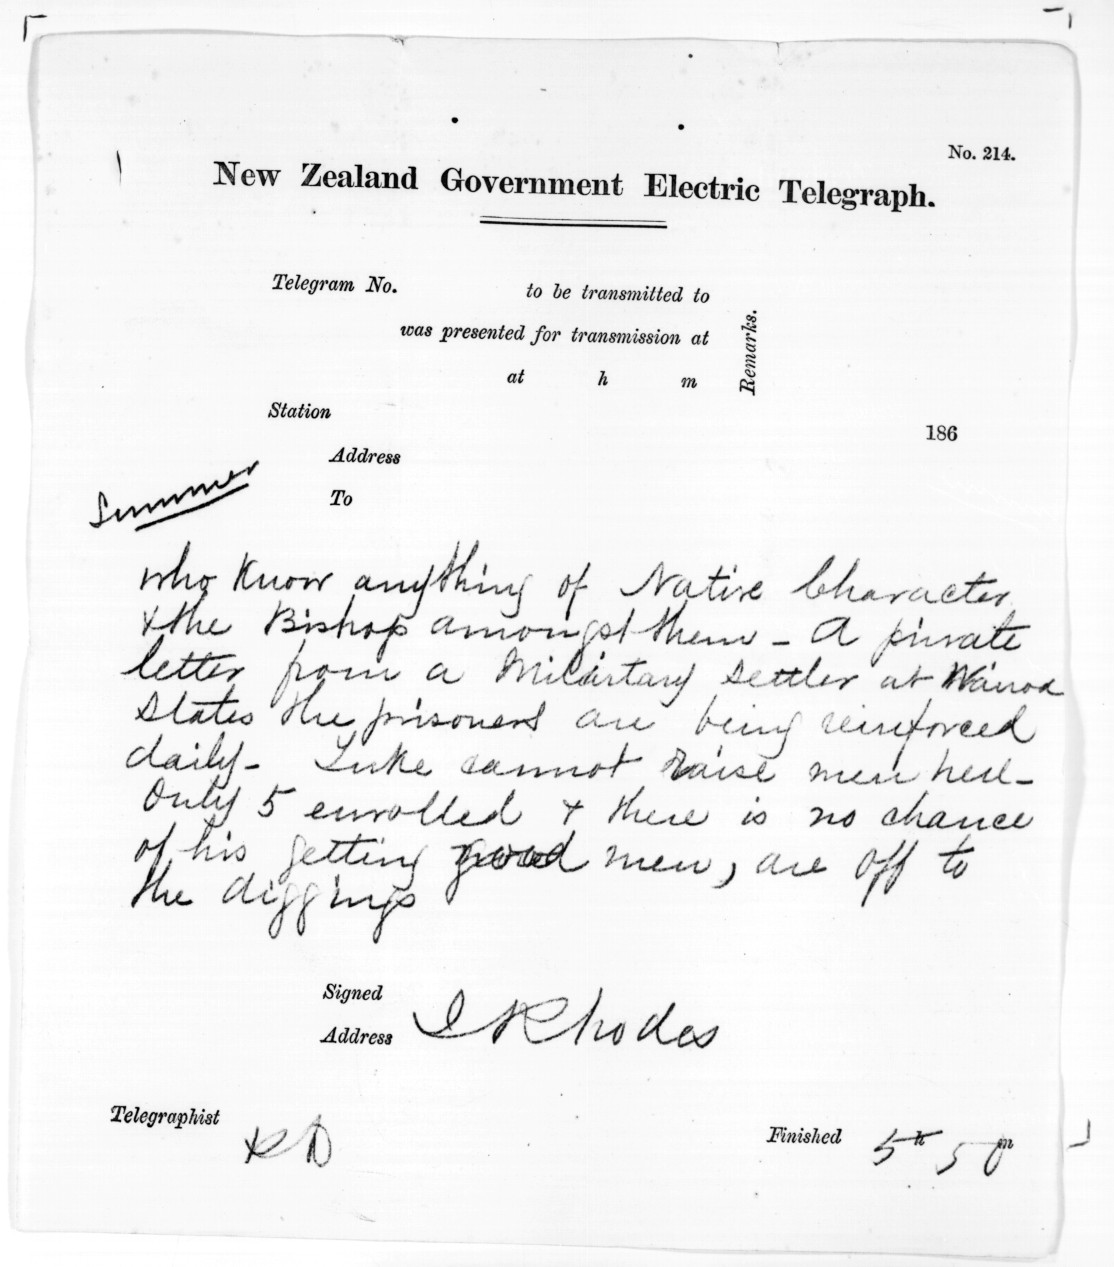 No. 214.
New Zealand Government Electric Telegraph.
Telegram No. to be transmitted to
was presented for transmission at
at h m
Remarks.
Station
186
Address
To
Summer
who know anything of Native Character
& the Bishop amongst them - A private
letter from a Military Settler at Wairoa
States the prisoners are being reinforced
daily - Luke cannot raise men here -
Only 5 enrolled & there is no chance
of his getting good men, are off to
the diggings
Signed
Address
J Rhodes
Telegraphist
R D
Finished 5h 50m